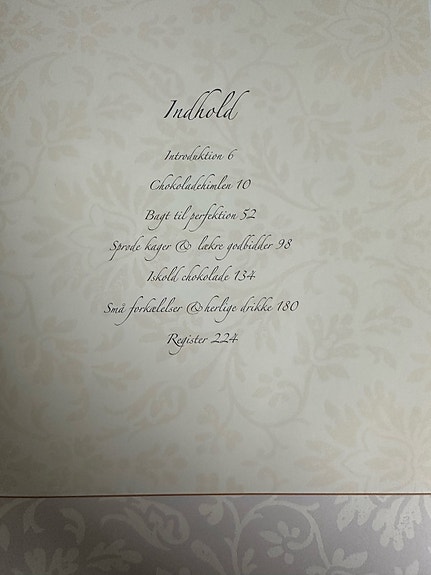 Indhold
Introduktion 6
Chokoladehimlen 10
Bagt til perfektion 52
Sprøde kager & lækre godbidder 98
Iskold chokolade 134
Små forkælelser & herlige drikke 180
Register 224